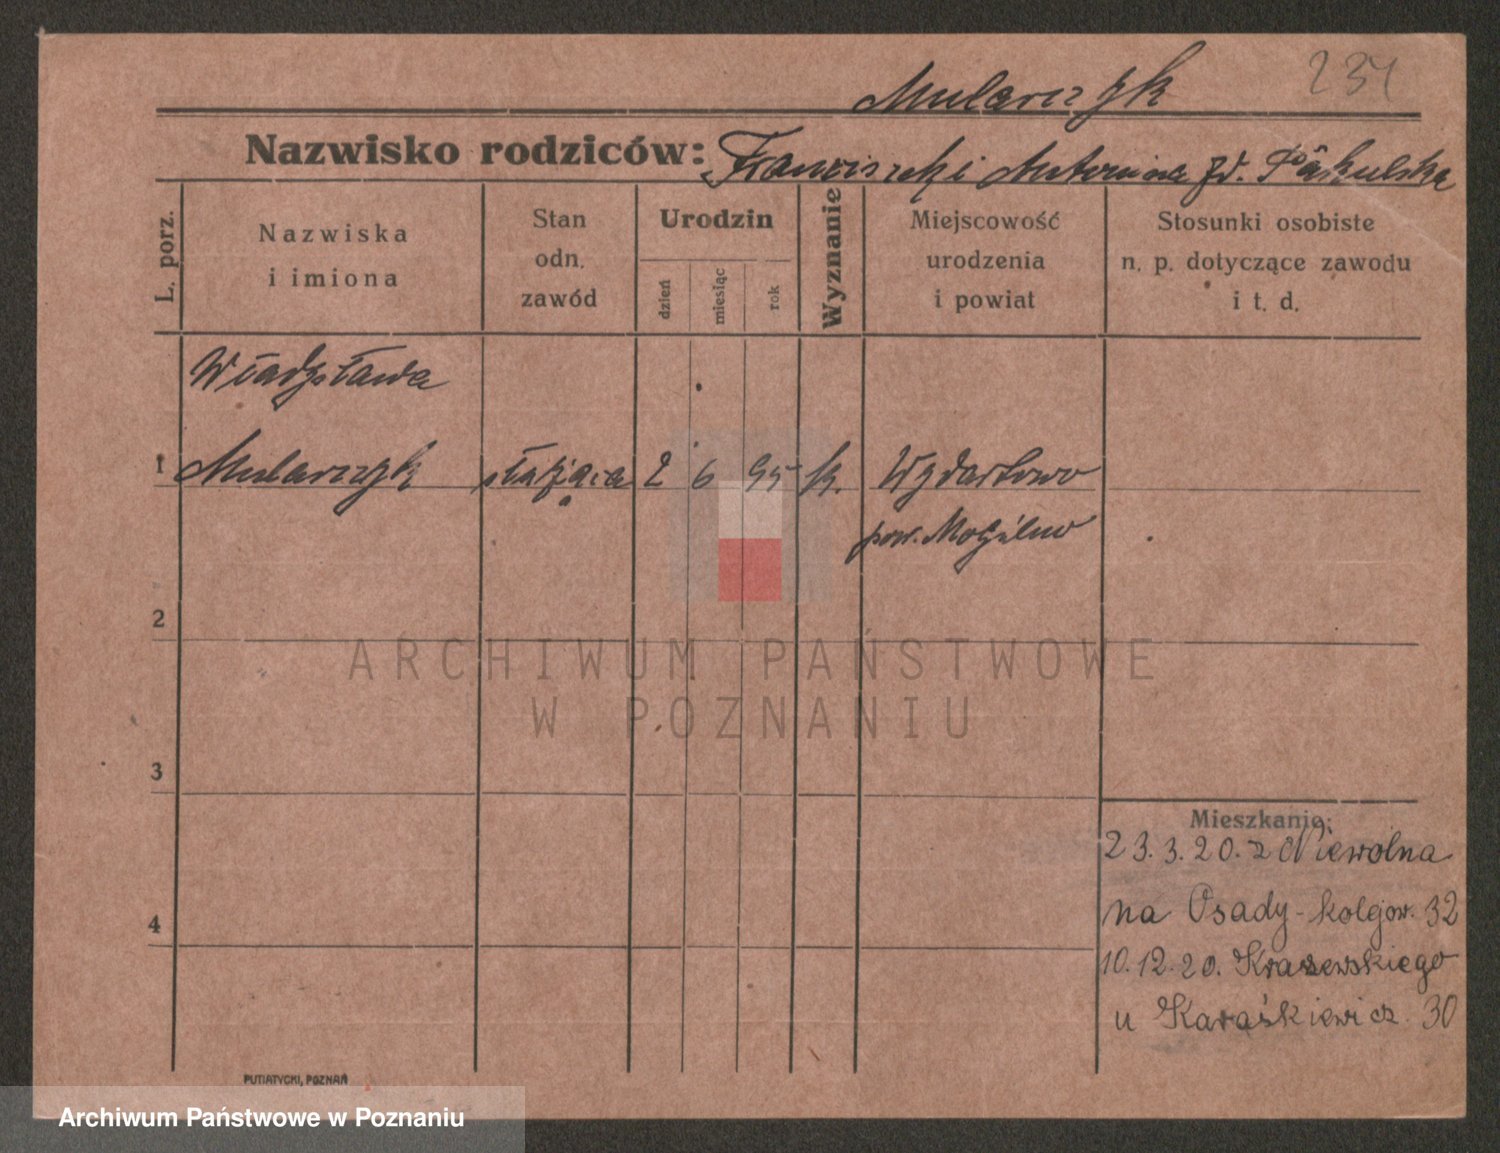 Mularczyk 237
Nazwisko rodziców: Franciszek i Antonina zd. Pąkulska
L. porz.
Nazwiska
i imiona
Stan
odn.
zawód
Urodzin
dzień
miesiąc
rok
Wyznanie
Miejscowość
urodzenia
i powiat
Stosunki osobiste
n. p. dotyczące zawodu
i t. d.
Władysława
1 Mularczyk służąca 2 6 95 k. Wydartowo
pow. Mogilno
2
ARCHIWUM PAŃSTWOWE
W POZNANIU
3
Mieszkanie:
23.3.20. z Niewolna
na Osady-kolejow. 32
4
10.12.20. Kraszewskiego
u Karaśkiewicz. 30
PUTIATYCKI, POZNAŃ
Archiwum Państwowe w Poznaniu